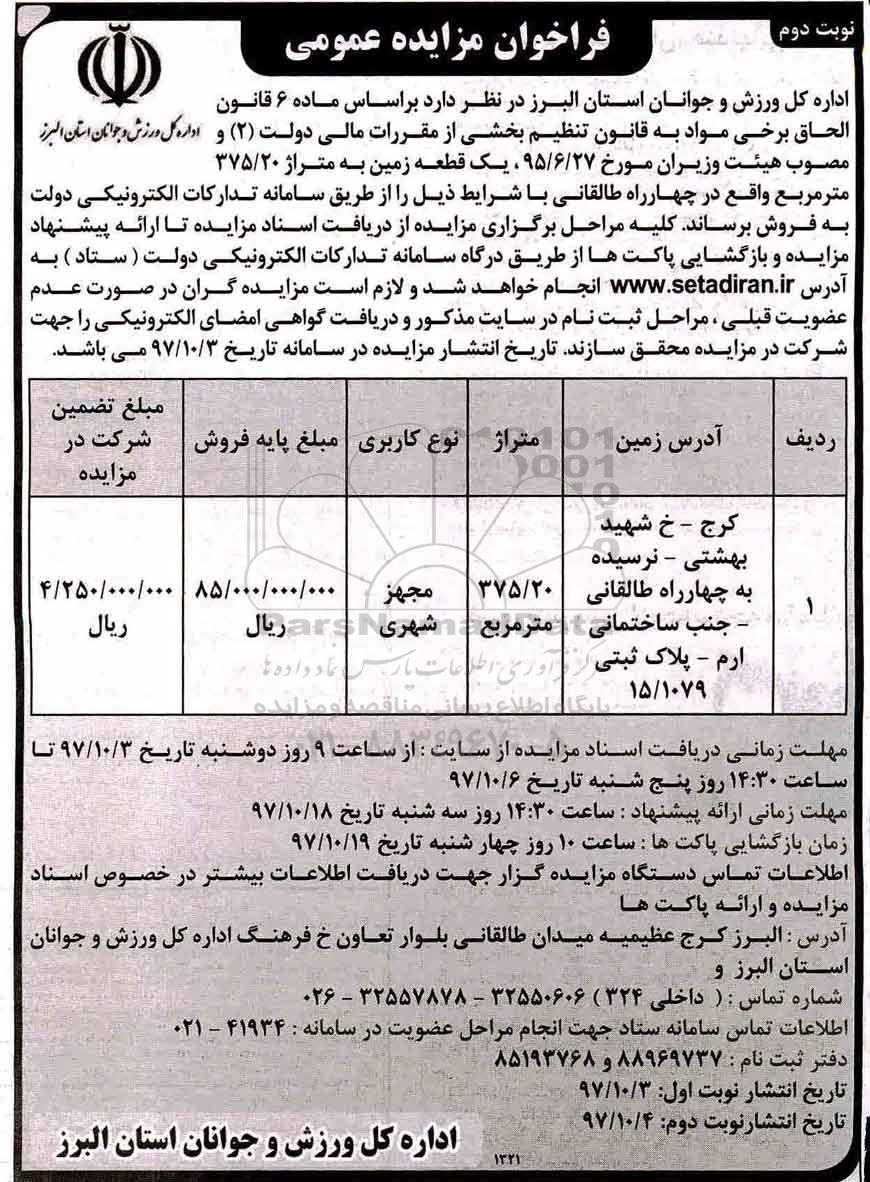 نوبت دوم
فراخوان مزایده عمومی
اداره کل ورزش و جوانان استان البرز
اداره کل ورزش و جوانان استان البرز در نظر دارد براساس ماده ۶ قانون
الحاق برخی مواد به قانون تنظیم بخشی از مقررات مالی دولت (۲) و
مصوب هیئت وزیران مورخ ۹۵/۶/۲۷ ، یک قطعه زمین به متراژ ۳۷۵/۲۰
مترمربع واقع در چهارراه طالقانی با شرایط ذیل را از طریق سامانه تدارکات الکترونیکی دولت
به فروش برساند. کلیه مراحل برگزاری مزایده از دریافت اسناد مزایده تا ارائه پیشنهاد
مزایده و بازگشایی پاکت ها از طریق درگاه سامانه تدارکات الکترونیکی دولت ( ستاد ) به
آدرس www.setadiran.ir انجام خواهد شد و لازم است مزایده گران در صورت عدم
عضویت قبلی ، مراحل ثبت نام در سایت مذکور و دریافت گواهی امضای الکترونیکی را جهت
شرکت در مزایده محقق سازند. تاریخ انتشار مزایده در سامانه تاریخ ۹۷/۱۰/۳ می باشد.
ردیف آدرس زمین متراژ نوع کاربری مبلغ پایه فروش مبلغ تضمین
شرکت در
مزایده
۱ کرج - خ شهید
بهشتی - نرسیده
به چهارراه طالقانی
- جنب ساختمانی
ارم - پلاک ثبتی
۱۵/۱۰۷۹
۳۷۵/۲۰
مترمربع
مجهز
شهری
۸۵/۰۰۰/۰۰۰/۰۰۰
ریال
۴/۲۵۰/۰۰۰/۰۰۰
ریال
ParsNamadData
مرکز فرآوری اطلاعات پارس نماد داده ها
پایگاه اطلاع رسانی مناقصه و مزایده
مهلت زمانی دریافت اسناد مزایده از سایت : از ساعت ۹ روز دوشنبه تاریخ ۹۷/۱۰/۳ تا
ساعت ۱۴:۳۰ روز پنج شنبه تاریخ ۹۷/۱۰/۶
مهلت زمانی ارائه پیشنهاد : ساعت ۱۴:۳۰ روز سه شنبه تاریخ ۹۷/۱۰/۱۸
زمان بازگشایی پاکت ها : ساعت ۱۰ روز چهار شنبه تاریخ ۹۷/۱۰/۱۹
اطلاعات تماس دستگاه مزایده گزار جهت دریافت اطلاعات بیشتر در خصوص اسناد
مزایده و ارائه پاکت ها
آدرس : البرز کرج عظیمیه میدان طالقانی بلوار تعاون خ فرهنگ اداره کل ورزش و جوانان
استان البرز و
شماره تماس : ( داخلی ۳۲۴ ) ۳۲۵۵۰۶۰۶ - ۳۲۵۵۷۸۷۸ - ۰۲۶
اطلاعات تماس سامانه ستاد جهت انجام مراحل عضویت در سامانه : ۴۱۹۳۴ - ۰۲۱
دفتر ثبت نام : ۸۸۹۶۹۷۳۷ و ۸۵۱۹۳۷۶۸
تاریخ انتشار نوبت اول: ۹۷/۱۰/۳
تاریخ انتشارنوبت دوم: ۹۷/۱۰/۴
اداره کل ورزش و جوانان استان البرز
۱۳۲۱